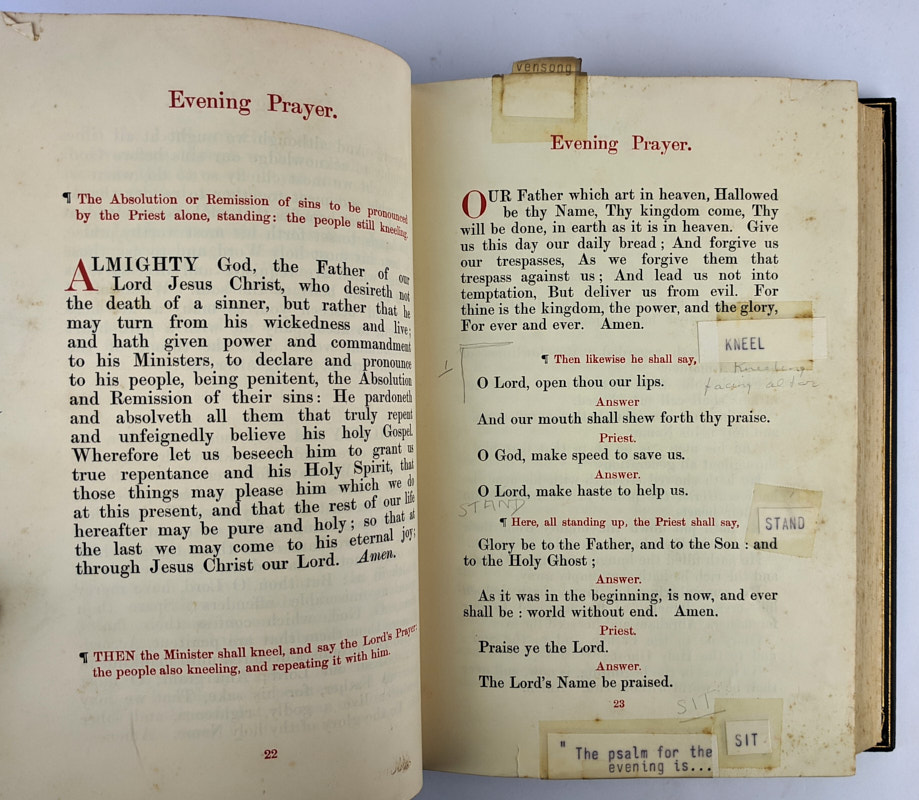 Evening Prayer.
¶ The Absolution or Remission of sins to be pronounced
by the Priest alone, standing: the people still kneeling.
ALMIGHTY God, the Father of our
Lord Jesus Christ, who desireth not
the death of a sinner, but rather that he
may turn from his wickedness and live;
and hath given power and commandment
to his Ministers, to declare and pronounce
to his people, being penitent, the Absolution
and Remission of their sins: He pardoneth
and absolveth all them that truly repent
and unfeignedly believe his holy Gospel.
Wherefore let us beseech him to grant us
true repentance and his Holy Spirit, that
those things may please him which we do
at this present, and that the rest of our life
hereafter may be pure and holy; so that at
the last we may come to his eternal joy;
through Jesus Christ our Lord. Amen.
¶ THEN the Minister shall kneel, and say the Lord's Prayer:
the people also kneeling, and repeating it with him.
22
vensong
Evening Prayer.
OUR Father which art in heaven, Hallowed
be thy Name, Thy kingdom come, Thy
will be done, in earth as it is in heaven. Give
us this day our daily bread; And forgive us
our trespasses, As we forgive them that
trespass against us; And lead us not into
temptation, But deliver us from evil. For
thine is the kingdom, the power, and the glory,
For ever and ever. Amen.
KNEEL
¶ Then likewise he shall say,
Kneeling
facing altar
O Lord, open thou our lips.
Answer
And our mouth shall shew forth thy praise.
Priest.
O God, make speed to save us.
Answer.
O Lord, make haste to help us.
STAND
¶ Here, all standing up, the Priest shall say,
STAND
Glory be to the Father, and to the Son : and
to the Holy Ghost ;
Answer.
As it was in the beginning, is now, and ever
shall be : world without end. Amen.
Priest.
Praise ye the Lord.
Answer.
The Lord's Name be praised.
23
SIT
SIT
" The psalm for the
evening is...